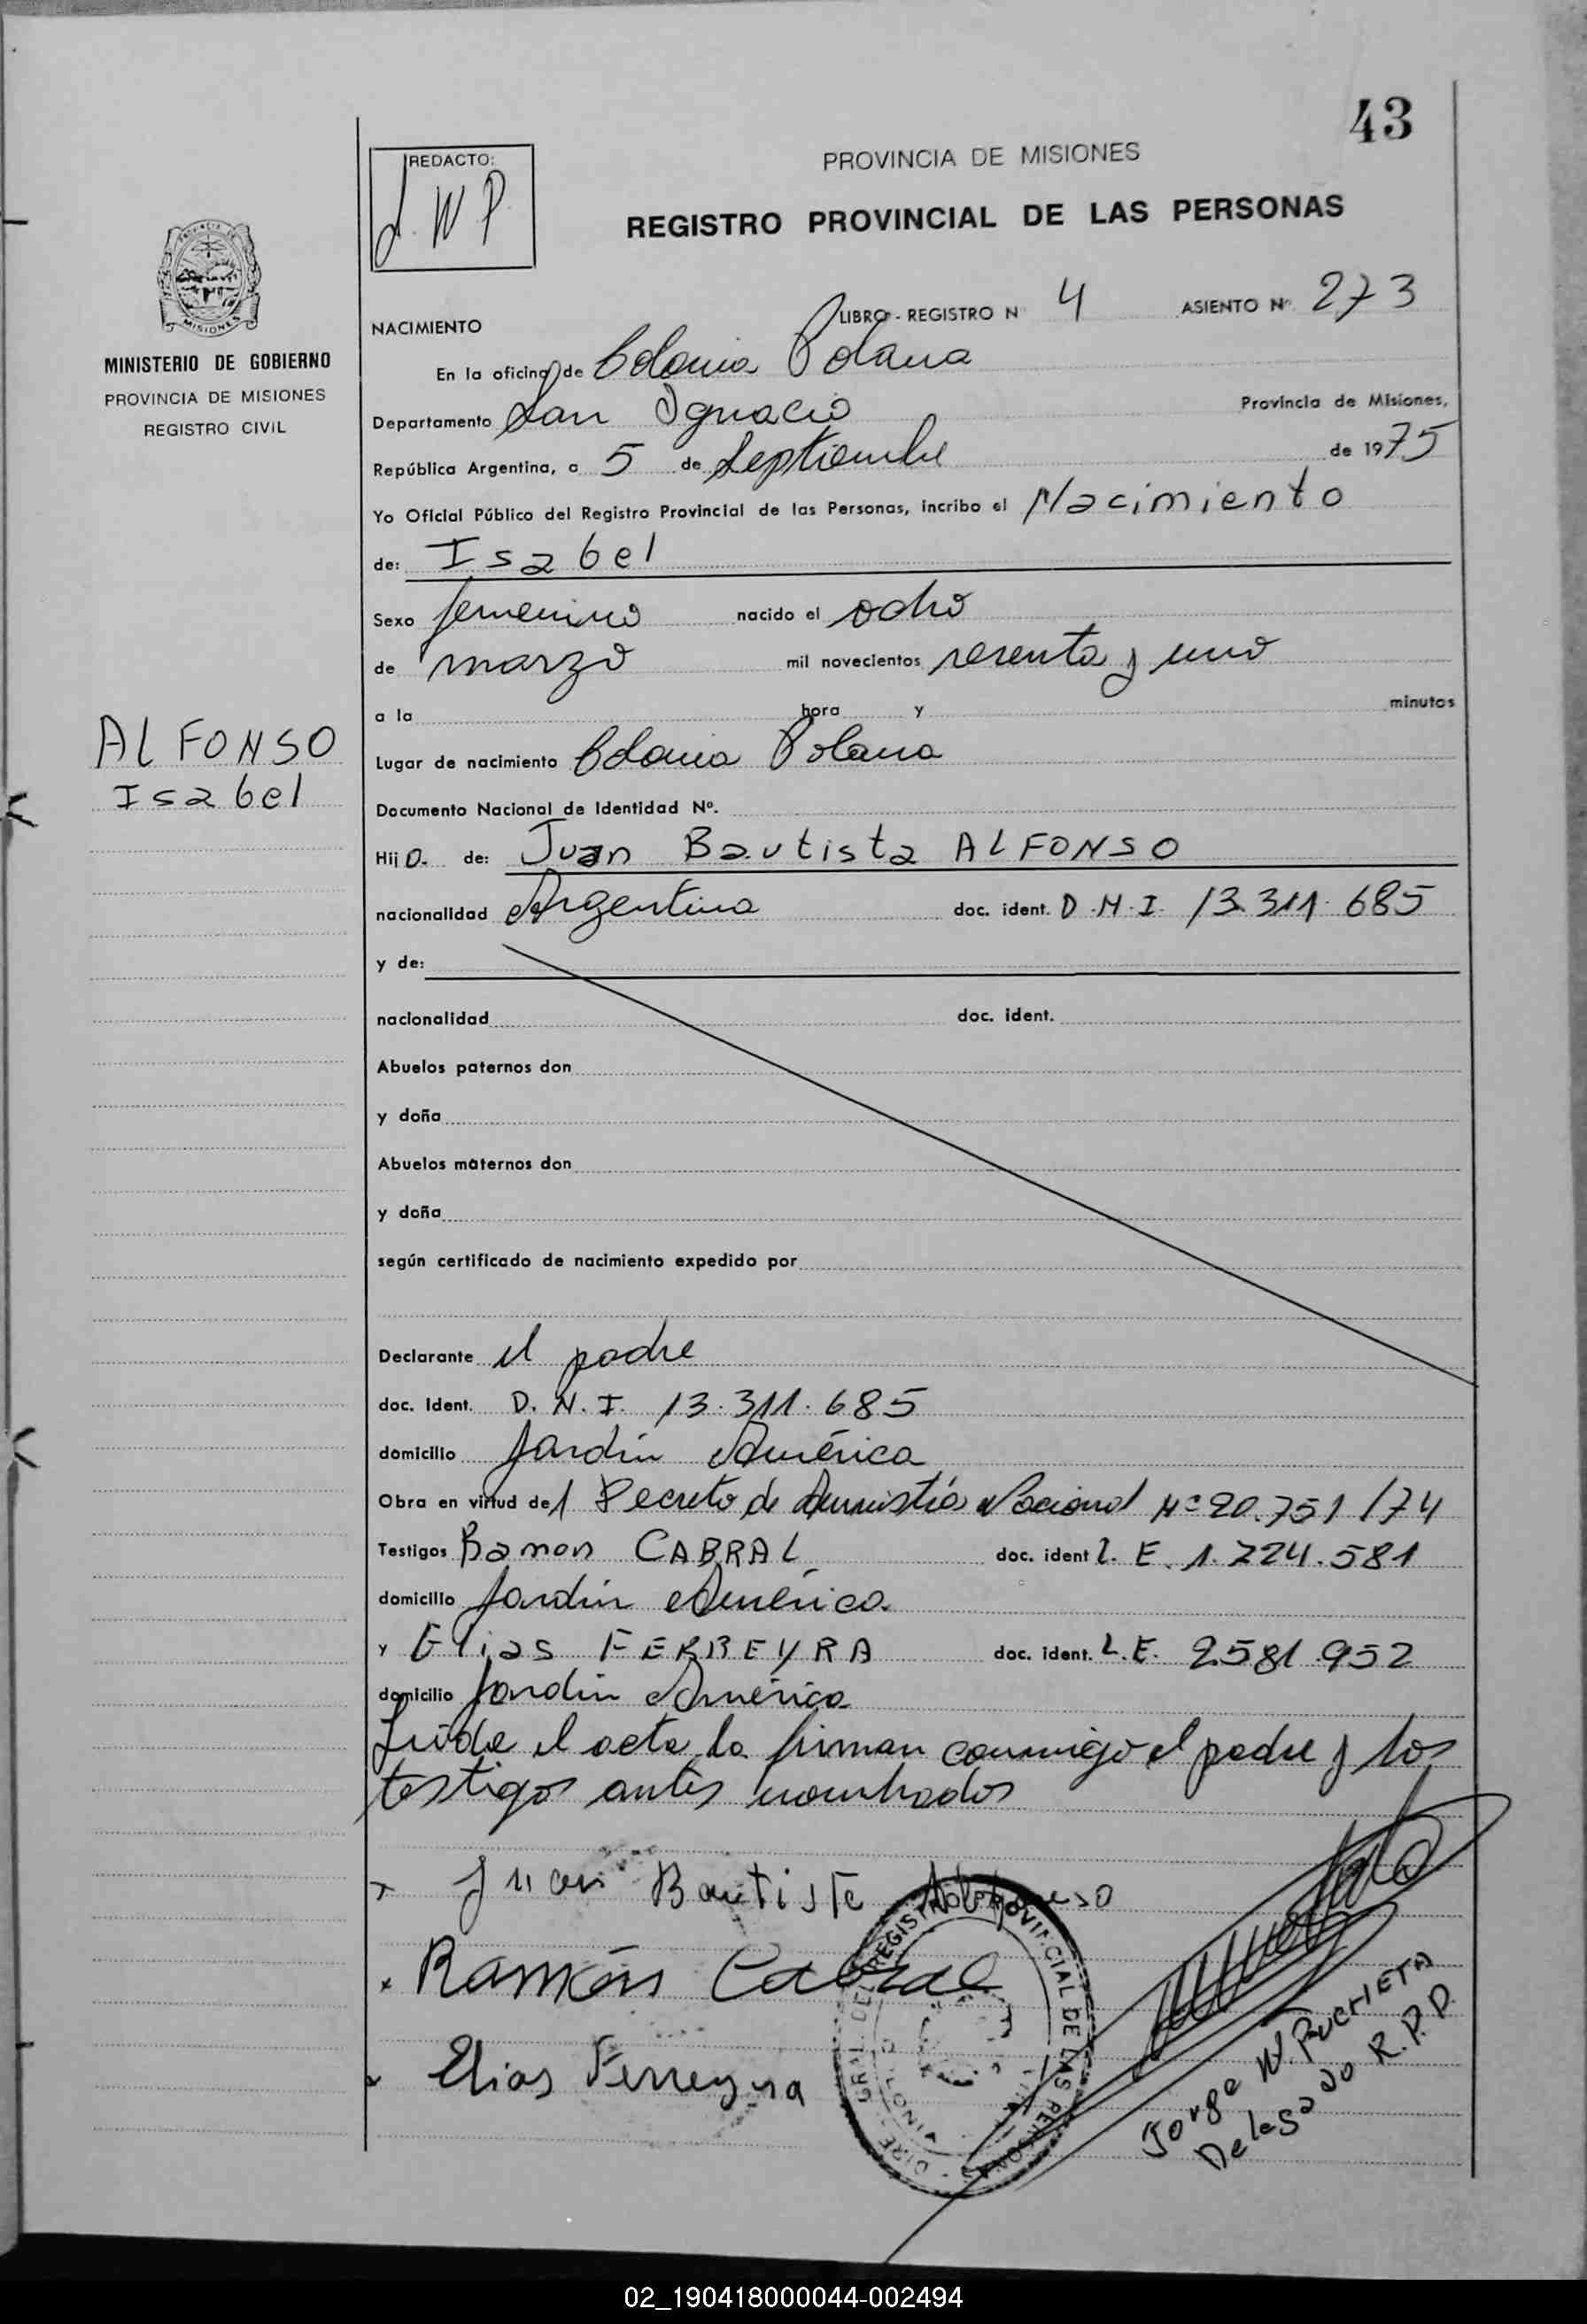 43
REDACTO:
J. W P.
PROVINCIA DE MISIONES
REGISTRO PROVINCIAL DE LAS PERSONAS
MISIONES
MINISTERIO DE GOBIERNO
PROVINCIA DE MISIONES
REGISTRO CIVIL
LIBRO - REGISTRO N 4 ASIENTO Nº. 273
NACIMIENTO
En la oficina de Colonia Polana
Departamento San Ignacio Provincia de Misiones,
República Argentina, a 5 de Septiembre de 1975
Yo Oficial Público del Registro Provincial de las Personas, incribo el Nacimiento
de: Isabel
Sexo femenino nacido el ocho
de marzo mil novecientos sesenta y uno
a la hora y minutos
ALFONSO
Isabel
Lugar de nacimiento Colonia Polana
Documento Nacional de Identidad Nº.
Hij o. de: Juan Bautista ALFONSO
nacionalidad Argentina doc. ident. D.N.I. 13.311.685
y de:
nacionalidad doc. ident.
Abuelos paternos don
y doña
Abuelos maternos don
y doña
según certificado de nacimiento expedido por
Declarante el padre
doc. Ident. D.N.I. 13.311.685
domicilio Jardín América
Obra en virtud del Decreto de Amnistía Nacional Nº 20.751/74
Testigos Ramon CABRAL doc. ident L.E. 1.724.581
domicilio Jardín América.
y Elias FERREYRA doc. ident. L.E. 2.581.952
domicilio Jardín América
Leída el acta la firman conmigo el padre y los
testigos antes nombrados
Juan Bautista Alfonso
Ramón Cabral
Elias Ferreyra
DIRE GRAL. DEL REGISTRO PROVINCIAL DE LAS PERSONAS
Jorge W. PUCHETA
Delegado R.P.P.
02_190418000044-002494